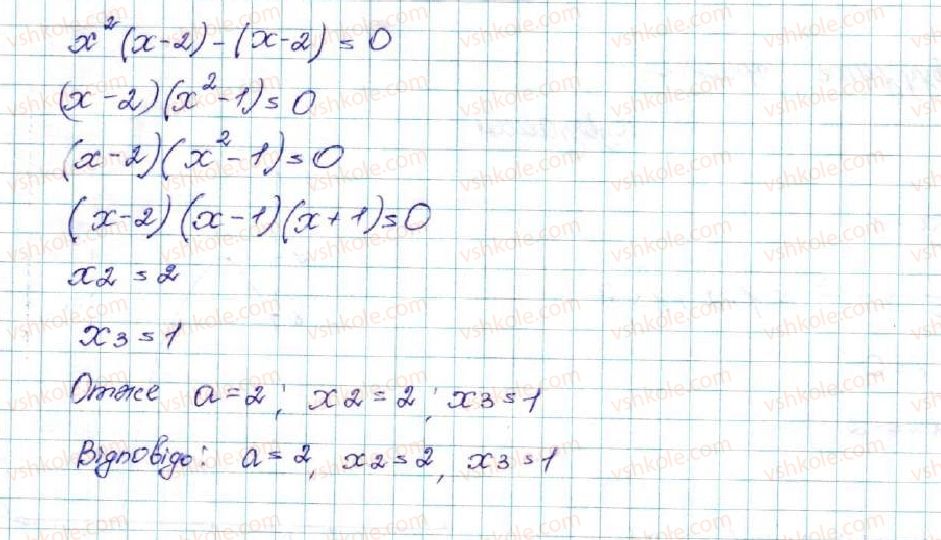 x²(x-2)-(x-2)=0
(x-2)(x²-1)=0
(x-2)(x²-1)=0
(x-2)(x-1)(x+1)=0
x2=2
x3=1
Отже a=2; x2=2; x3=1
Відповідь: a=2, x2=2, x3=1
vshkole.com